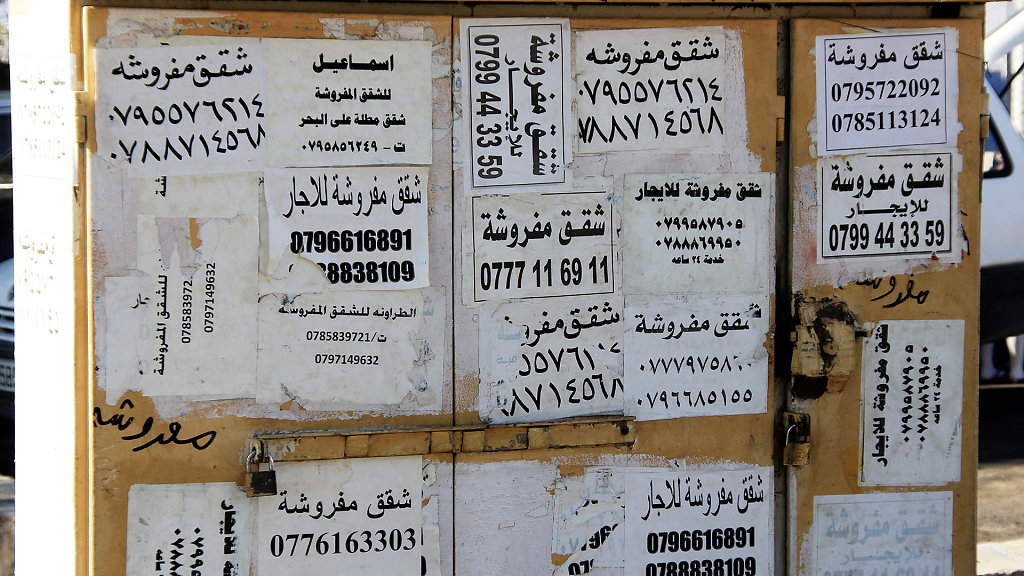 شقق مفروشه
٠٧٩٥٥٧٦٢١٤
٠٧٨٨٧١٤٥٦٨
اسماعيل
للشقق المفروشة
شقق مطلة على البحر
ت - ٠٧٩٥٨٥٦٢٤٩
شقق مفروشة
للايجار
0799 44 33 59
شقق مفروشه
٠٧٩٥٥٧٦٢١٤
٧٨٨٧١٤٥٦٨
شقق مفروشة
0795722092
0785113124
شقق مفروشة للاجار
0796616891
88838109
شقق مفروشة
0777 11 69 11
شقق مفروشة للايجار
٠٧٩٩٥٨٧٩٠٥
٠٧٨٨٨٦٩٩٥٠
خدمة ٢٤ ساعه
شقق مفروشة
للإيجار
0799 44 33 59
للشقق المفروشة
078583972
0797149632
الطراونه للشقق المفروشه
ت/0785839721
0797149632
شقق
٨٨٧١٤٥٦٨
شقق مفروشة
٠٧٩٦٦٨٥١٥٥
مفروشه
شقق مفروشة للايجار
٠٧٩٩٥٨٧٩٠٥
٠٧٨٨٨٦٩٩٥٠
خدمة ٢٤ ساعه
مفروشه
شقق مفروشة
0776163303
شقق مفروشة للاجار
0796616891
0788838109
شقق مفروشة
للإيجار
0777 11 69 11